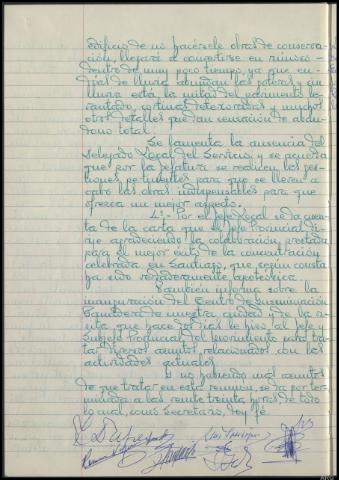 edificio de no hacérsele obras de conserva-
ción, llegará a convertirse en ruinoso
dentro de muy poco tiempo, ya que en
días de lluvia abundan las goteras y sin
lluvia está la mitad del pavimento le-
vantado, cortinas deterioradas y muchos
otros detalles que dan sensación de aban-
dono total.
Se lamenta la ausencia del
Delegado Local del Servicio y se acuerda
que por la Jefatura se realicen las ges-
tiones pertinentes para que se lleven a
cabo las obras indispensables para que
ofrezca un mejor aspecto.
4º.- Por el Jefe Local se da cuen-
ta de la carta que el Jefe Provincial di-
rige agradeciendo la colaboración prestada
para el mejor éxito de la concentración
celebrada en Santiago, que según consta
ha sido verdaderamente apoteósica.
También informa sobre la
inauguración del Centro de Inseminación
Ganadera de nuestra ciudad y de la vi-
sita que hace dos días le hizo al Jefe y
Subjefe Provincial del Movimiento para tra-
tar diversos asuntos relacionados con las
actividades actuales.
Y no habiendo más asuntos
de que tratar en esta reunión, se da por ter-
minada a las veinte treinta horas de todo
lo cual, como Secretario, doy fé.